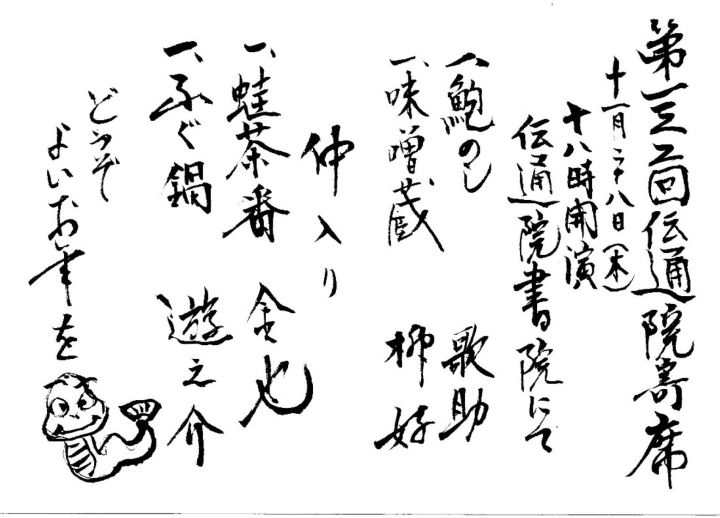 第一三二回伝通院寄席
十一月二十八日(木)
十八時開演
伝通院書院にて
一、鮑のし 歌助
一、味噌蔵 柳好
仲入り
一、蛙茶番 金也
一、ふぐ鍋 遊之介
どうぞ
よいお年を